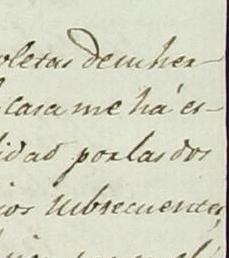 oletas de su her-
casa me há es-
idad por las dos
ios subsecuentes,